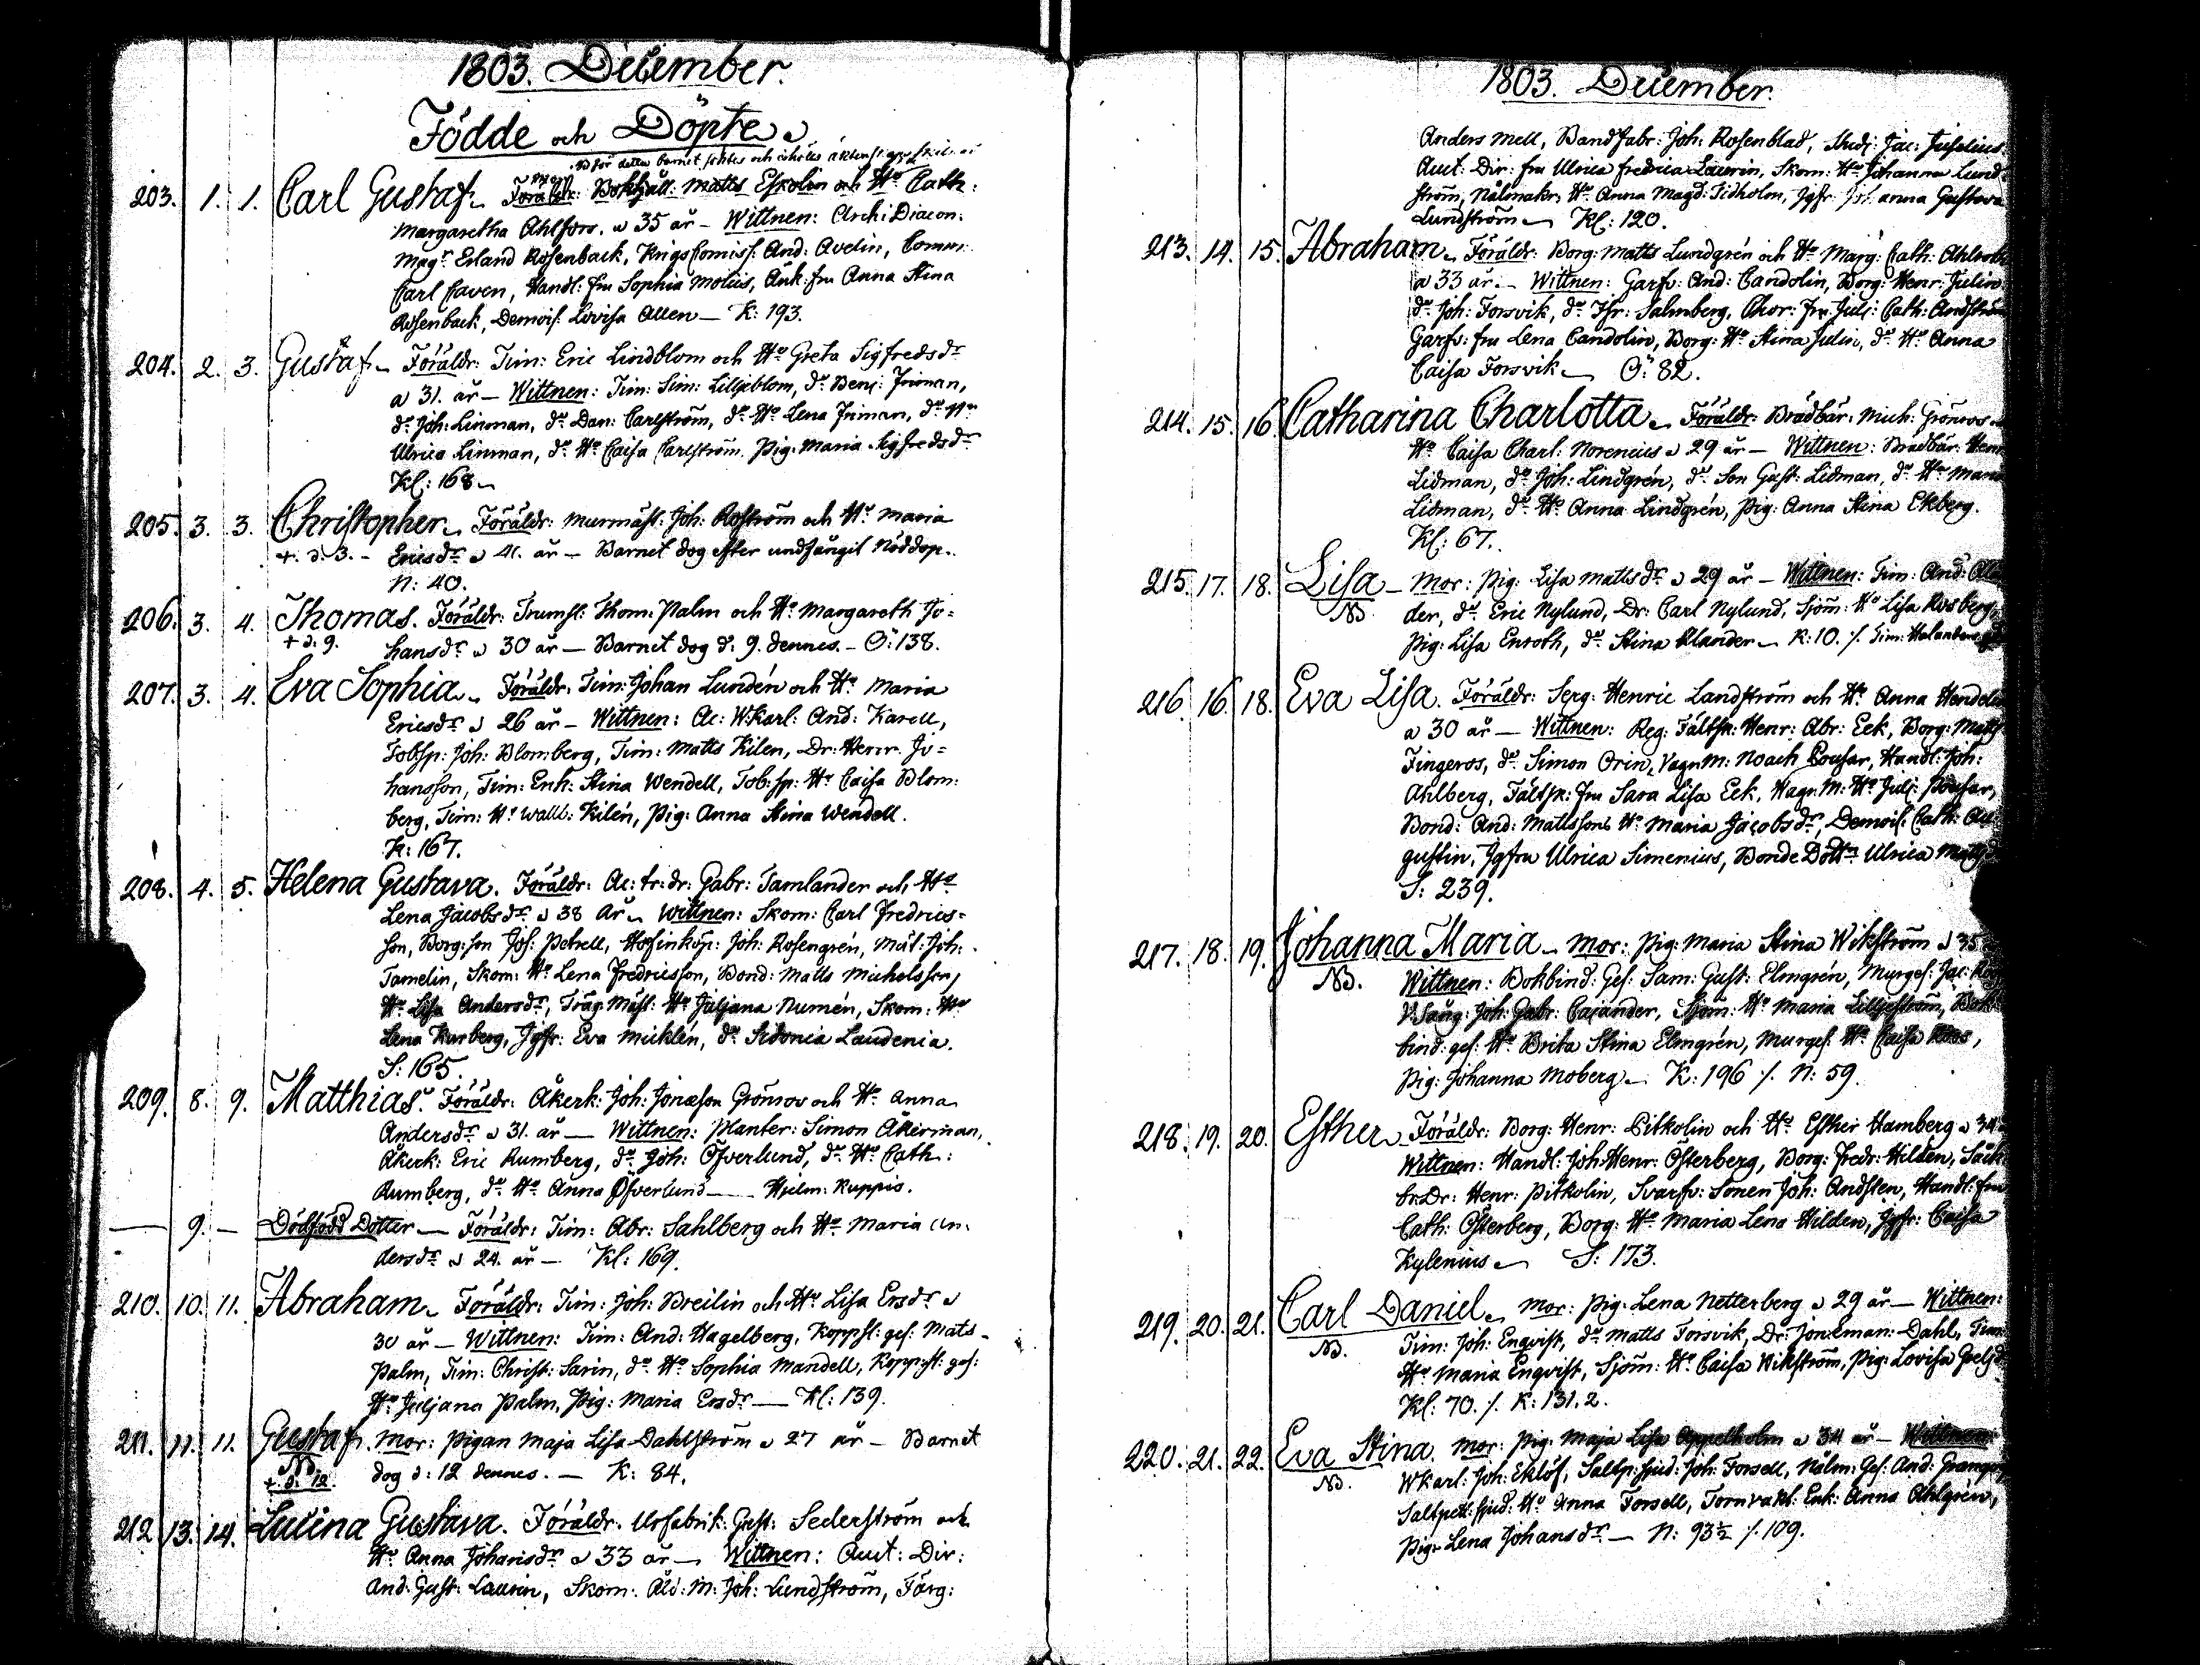 1803. December.
Födde och Döpte
barnet
203. 1. 1. Carl Gustaf. Föräldr: Bokhåll: Matts Eskolin och Hu Cath:
Margaretha Ahlfors. a 35 år – Wittnen: Arch: Diacon:
Magr Erland Rosenback, KrigsComiss: And: Avelin, Comm:
Carl Caven, Handl: fru Sophia Molius, Enk: fru Anna Stina
Rosenback, Demois: Lovisa Allen — K: 193.
204. 2. 3. Gustaf. Föräldr: Tim: Eric Lindblom och Hu Greta Sigfredsdr
a 31. år – Wittnen: Tim: Sim: Lilljeblom, do Benj: Friman,
do Joh: Linman, do Dan: Carlström, do Hu Lena Friman, do Hu
Ulrica Linman, do Hu Caisa Carlström. Pig: Maria Sigfredsdr
Kl: 168
205. 3. 3. Christopher. Föräldr: Murmäst: Joh: Roström och Hu Maria
+. d. 3. – Ericsdr a 41. år – Barnet dog efter undfångit Nöddop.
N: 40.
206. 3. 4. Thomas. Föräldr: Trumsl: Thom: Palm och Hu Margareth Jo=
+ d. 9. hansdr a 30 år — Barnet dog d. 9. dennes. – Ö: 138.
207. 3. 4. Eva Sophia. Föräldr: Tim: Johan Lundén och Hu Maria
Ericsdr a 26 år – Wittnen: Ac: Wkarl: And: Karell,
Tobsp: Joh: Blomberg, Tim: Matts Kilen, Dr: Henr: Jo=
hansson, Tim: Enk: Stina Wendell, Tob: sp: Hu Caisa Blom:
berg, Tim: Hu Walb: Kilén, Pig: Anna Stina Wendell.
K: 167.
208. 4. 5. Helena Gustava. Föräldr: Ac: tr: dr: Gabr: Tamlander och Hu
Lena Jacobsdr a 38 år. Wittnen: Skom: Carl Fredrics=
son, Borg: son Jos: Petrell, Hofinköp: Joh: Rosengrén, Mål: Joh:
Tamelin, Skom: Hu Lena Fredricsson, Bond: Matts Michelsson,
Hu Lisa Andersdr, Träg: Mäst: Hu Juljana Numén, Skom: Hu
Lena Kurberg, Jgfr: Eva Micklén, do Sidonia Laudenia.
S: 165.
209. 8. 9. Matthias. Föräldr: Åkerk: Joh: Jonasson Grönros och Hu Anna
Andersdr a 31. år — Wittnen: Planter: Simon Åkerman,
Åkerk: Eric Rumberg, do Joh: Öfverlund, do Hu Cath:
Rumberg, do Hu Anna Öfverlund — Hjelm: Kuppis.
— 9. – Dödfödd Dotter — Föräldr: Tim: Abr: Sahlberg och Hu Maria An:
dersdr a 24. år — Kl: 169.
210. 10. 11. Abraham. Föräldr: Tim: Joh: Breilin och Hu Lisa Ersdr a
30 år — Wittnen: Tim: And: Hagelberg, Koppsl: ges: Mats
Palm, Tim: Christ: Sarin, do Hu Sophia Mandell, Koppsl: ges:
Hu Juljana Palm, Pig: Maria Ersdr — Kl: 139.
211. 11. 11. Gustaf. Mor: Pigan Maja Lisa Dahlström a 27 år – Barnet
NB. + d. 12. dog d: 12 dennes. — K: 84.
212 13. 14. Lucina Gustava. Föräldr: Urfabrik: Gust: Sederström och
Hu Anna Johansdr a 33 år — Wittnen: Auct: Dir:
And: Gust: Laurin, Skom: Åld: M: Joh: Lundström, Färg:
1803. December.
Anders Mell, Bandfabr: Joh: Rosenblad, Stud: Jac: Juselius
Auct: Dir: fru Ulrica Fredrica Laurin, Skom: Hu Johanna Lund
ström, Nålmakr: Hu Anna Magd: Tidholm, Jgfr: Johanna Gustava
Lundström — Kl: 120.
213. 14. 15. Abraham. Föräldr: Borg: Matts Lundgrén och Hu Marg: Cath:
a 33 år. – Wittnen: Garfv: And: Candolin, Borg: Henr: Julin
do Joh: Forsvik, do Isr: Salmberg, Chor: fru Julj: Cath:
Garfv: fru Lena Candolin, Borg: Hu Stina Julin, do Hu Anna
Caisa Forsvik — Ö: 82.
214. 15. 16. Catharina Charlotta. Föräldr: Brädbär: Mich: Grönros
Hu Caisa Charl: Norenius a 29 år — Wittnen: Brädbär: Henr
Lidman, do Joh: Lindgrén, do Son Gust: Lidman, do Hu Maria
Lidman, do Hu Anna Lindgrén, Pig: Anna Stina Ekberg.
Kl: 67.
215. 17. 18. Lisa – Mor: Pig: Lisa Mattsdr a 29 år — Wittnen: Tim: And:
NB. der, do Eric Nylund, Dr: Carl Nylund, Sjöm: Hu Lisa Rosberg,
Pig: Lisa Enroth, do Stina Alander – K: 10. /.
216. 16. 18. Eva Lisa. Föräldr: Serg: Henric Landström och Hu Anna
a 30 år — Wittnen: Reg: Fältsk: Henr: Abr: Eek, Borg: Matts
Fingeros, do Simon Orin, Vagnm: Noach Pousar, Handl: Joh:
Ahlberg, Fältsk: fru Sara Lisa Eek, Vagn: M: Hu Julj: Pousar,
Bond: And: Mattssons Hu Maria Jacobsdr, Demois: Cath: Au
gustin, Jgfru Ulrica Simenius, Bonde Dottr Ulrica
S: 239.
217. 18. 19. Johanna Maria – Mor: Pig: Maria Stina Wikström a 35
NB. Wittnen: Bokbind: Ges: Sam: Gust: Elmgrén, Murges: Jac:
Joh: Gabr: Cajander, Sjöm: Hu Maria Lilljeström, Bok
bind: ges: Hu Brita Stina Elmgrén, Murges: Hu Caisa Roos,
Pig: Johanna Moberg – K: 196 /. N: 59.
218. 19. 20. Esther. Föräldr: Borg: Henr: Pitkolin och Hu Esther Hamberg a 34
Wittnen: Handl: Joh: Henr: Österberg, Borg: Fredr: Hilden, Sock
br: Dr: Henr: Pitkolin, Svarfv: Sonen Joh: Andsten, Handl: fru
Cath: Österberg, Borg: Hu Maria Lena Hilden, Jgfr: Caisa
Kylenius — S: 173.
219. 20. 21. Carl Daniel. Mor: Pig: Lena Netterberg a 29 år — Wittnen:
NB. Tim: Joh: Enqvist, do Matts Forsvik, Dr: Dahl, Tim:
Hu Maria Enqvist, Sjöm: Hu Caisa Wikström, Pig: Lovisa
Kl: 70. /. K: 131. 2.
220. 21. 22. Eva Stina. Mor: Pig: Maja Lisa Appelholm a 34 år — Wittnen:
NB. Wkarl: Joh: Eklöf, Saltp: sjud: Joh: Forsell, Nålm: Ges: And:
Saltpet: sjud: Hu Anna Forsell, Tornvakt: Enk: Anna Ahlgrén,
Pig: Lena Johansdr — N: 93½ /. 109.